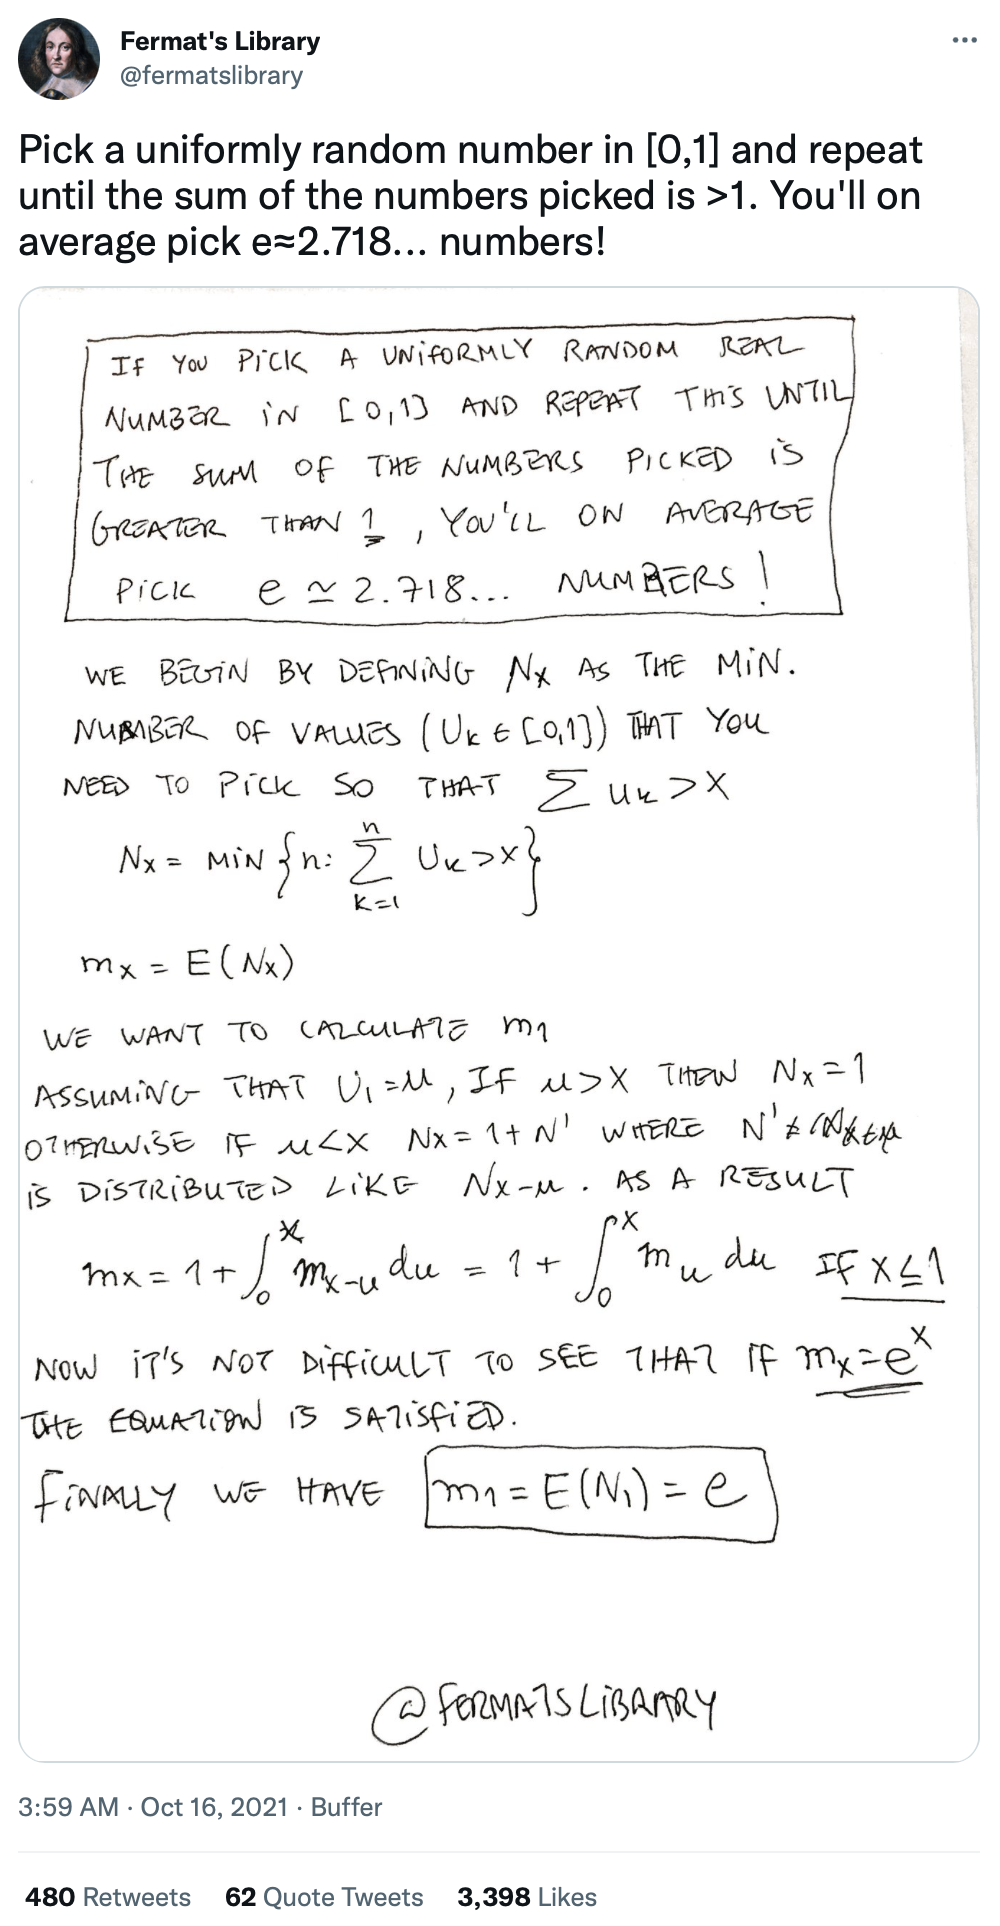 Fermat's Library
@fermatslibrary
Pick a uniformly random number in [0,1] and repeat
until the sum of the numbers picked is >1. You'll on
average pick e≈2.718... numbers!
IF YOU PICK A UNIFORMLY RANDOM REAL
NUMBER IN [0,1] AND REPEAT THIS UNTIL
THE SUM OF THE NUMBERS PICKED IS
GREATER THAN 1, YOU'LL ON AVERAGE
PICK e ≃ 2.718... NUMBERS!
WE BEGIN BY DEFINING Nx AS THE MIN.
NUMBER OF VALUES (Uk ∈ [0,1]) THAT YOU
NEED TO PICK SO THAT ∑ Uk > X
Nx = MIN {n: ∑_{k=1}^{n} Uk > x}
mx = E(Nx)
WE WANT TO CALCULATE m1
ASSUMING THAT U1 = u, IF u > X THEN Nx = 1
OTHERWISE IF u < X Nx = 1 + N' WHERE N'
IS DISTRIBUTED LIKE Nx-u. AS A RESULT
mx = 1 + ∫_0^x mx-u du = 1 + ∫_0^x mu du IF X ≤ 1
NOW IT'S NOT DIFFICULT TO SEE THAT IF mx = e^x
THE EQUATION IS SATISFIED.
FINALLY WE HAVE m1 = E(N1) = e
@FERMATSLIBRARY
3:59 AM · Oct 16, 2021 · Buffer
480 Retweets 62 Quote Tweets 3,398 Likes